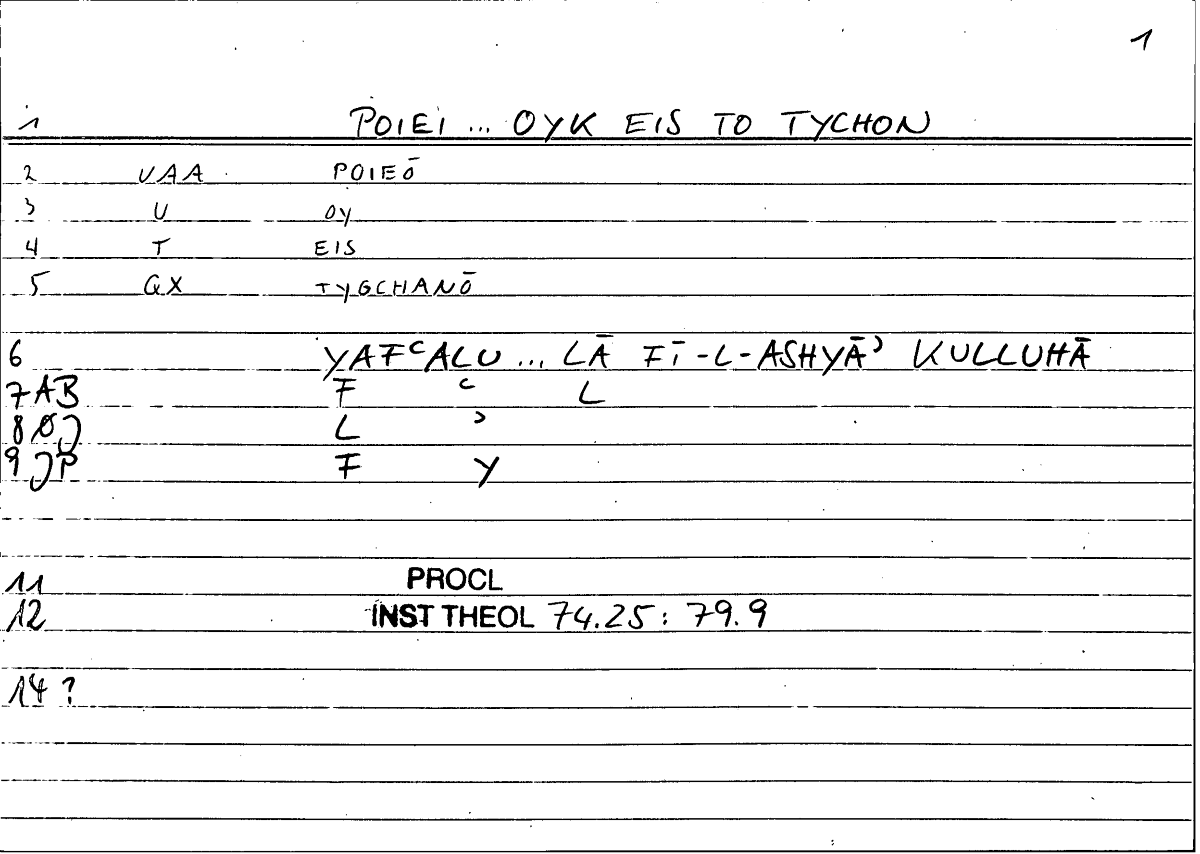 1
1 POIEI ... OYK EIS TO TYCHON
2 VAA POIEŌ
3 U OY
4 T EIS
5 GX TYGCHANŌ
6 YAFʿALU ... LĀ FĪ-L-ASHYĀʾ KULLUHĀ
7 AB F ʿ L
8 ØJ L ʾ
9 JP F Y
11 PROCL
12 INST THEOL 74.25: 79.9
14 ?